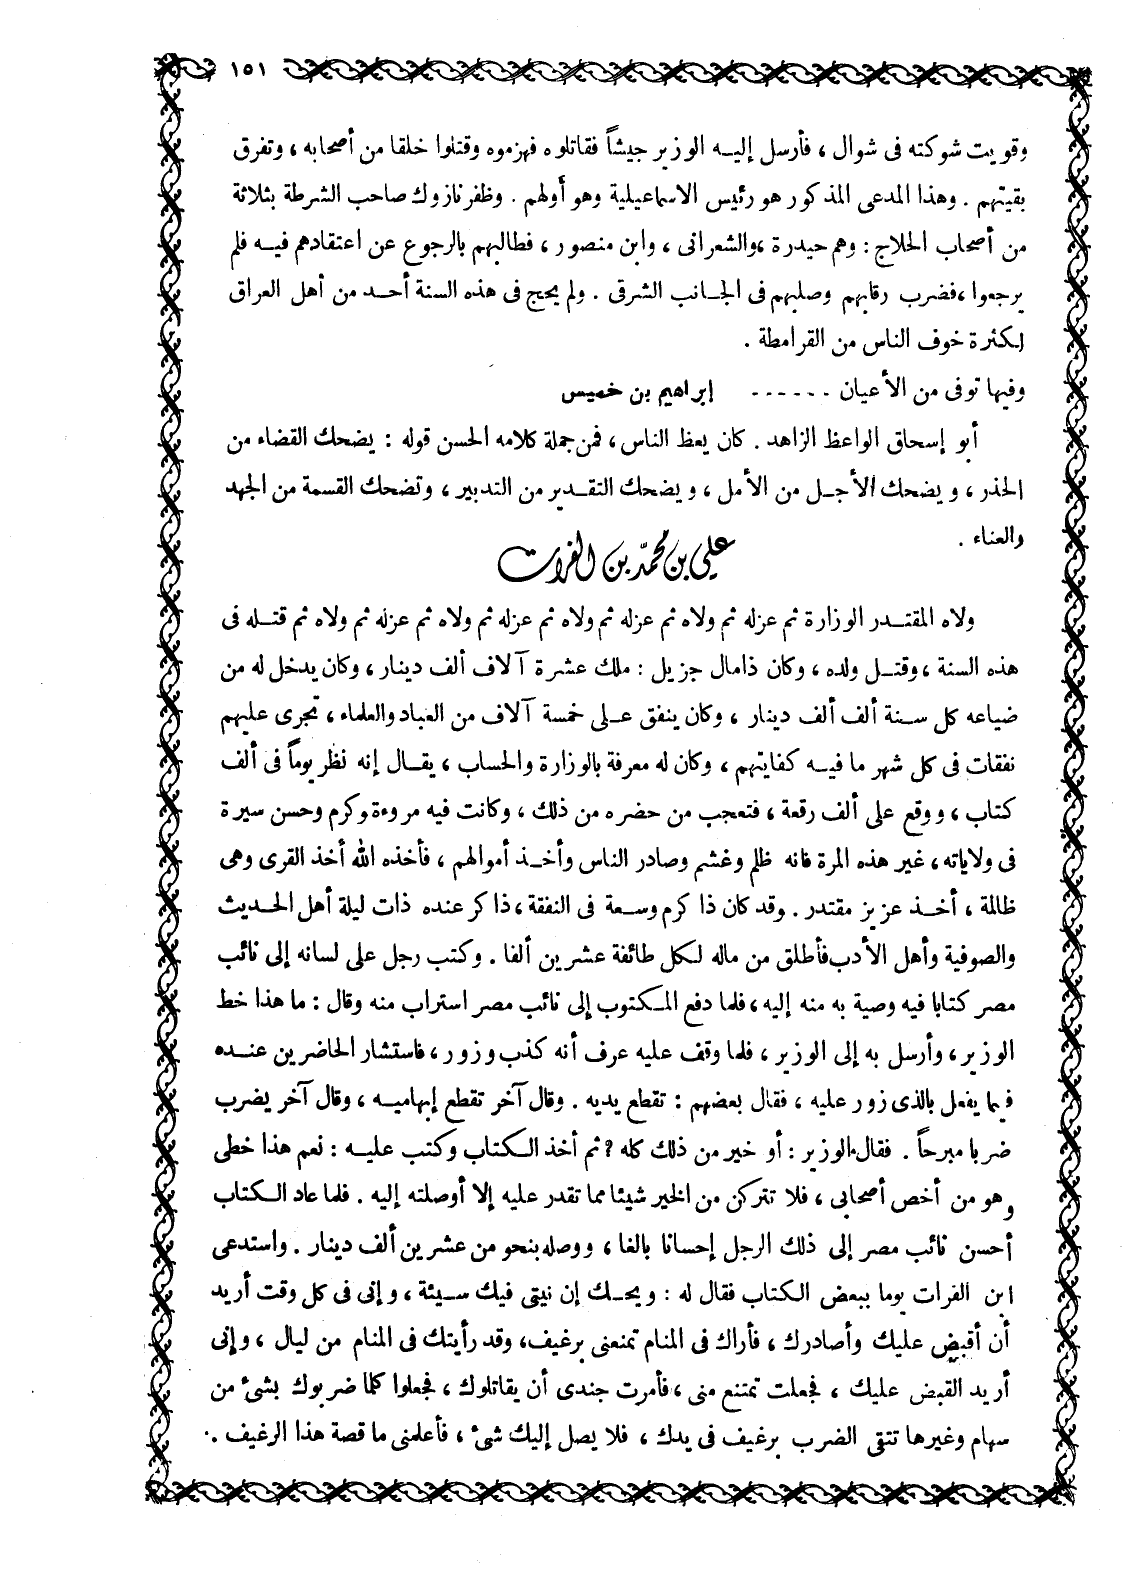 ١٥١
وقويت شوكته فى شوال ، فأرسل إليه الوزير جيشاً فقاتلوه فهزموه وقتلوا خلقا من أصحابه ، وتفرق
بقيتهم . وهذا المدعى المذكور هو رئيس الاسماعيلية وهو أولهم . وظفر نازوك صاحب الشرطة بثلاثة
من أصحاب الحلاج : وهم حيدرة ، والشعرانى ، وابن منصور ، فطالبهم بالرجوع عن اعتقادهم فيه فلم
يرجعوا ، فضرب رقابهم وصلبهم فى الجانب الشرقى . ولم يحج فى هذه السنة أحد من أهل العراق
لكثرة خوف الناس من القرامطة .
وفيها توفى من الأعيان ...... إبراهيم بن خميس
أبو إسحاق الواعظ الزاهد . كان يعظ الناس ، فمن جملة كلامه الحسن قوله : يضحك القضاء من
الحذر ، ويضحك الأجل من الأمل ، ويضحك التقدير من التدبير ، وتضحك القسمة من الجهد
والعناء .
علي بن محمد بن الفرات
ولاه المقتدر الوزارة ثم عزله ثم ولاه ثم عزله ثم ولاه ثم عزله ثم ولاه ثم عزله ثم ولاه ثم قتله فى
هذه السنة ، وقتل ولده ، وكان ذا مال جزيل : ملك عشرة آلاف ألف دينار ، وكان يدخل له من
ضياعه كل سنة ألف ألف دينار ، وكان ينفق على خمسة آلاف من العباد والعلماء ، تجرى عليهم
نفقات فى كل شهر ما فيه كفايتهم ، وكان له معرفة بالوزارة والحساب ، يقال إنه نظر يوماً فى ألف
كتاب ، ووقع على ألف رقعة ، فتعجب من حضره من ذلك ، وكانت فيه مروءة وكرم وحسن سيرة
فى ولاياته ، غير هذه المرة فانه ظلم وغشم وصادر الناس وأخذ أموالهم ، فأخذه الله أخذ القرى وهى
ظالمة ، أخذ عزيز مقتدر . وقد كان ذا كرم وسعة فى النفقة ، ذاكر عنده ذات ليلة أهل الحديث
والصوفية وأهل الأدب فأطلق من ماله لكل طائفة عشرين ألفا . وكتب رجل على لسانه إلى نائب
مصر كتابا فيه وصية به منه إليه ، فلما دفع المكتوب إلى نائب مصر استراب منه وقال : ما هذا خط
الوزير ، وأرسل به إلى الوزير ، فلما وقف عليه عرف أنه كذب وزور ، فاستشار الحاضرين عنده
فيما يفعل بالذى زور عليه ، فقال بعضهم : تقطع يديه . وقال آخر تقطع إبهاميه ، وقال آخر يضرب
ضربا مبرحاً . فقال الوزير : أو خير من ذلك كله ? ثم أخذ الكتاب وكتب عليه : نعم هذا خطى
وهو من أخص أصحابى ، فلا تتركن من الخير شيئا مما تقدر عليه إلا أوصلته إليه . فلما عاد الكتاب
أحسن نائب مصر إلى ذلك الرجل إحسانا بالغا ، ووصله بنحو من عشرين ألف دينار . واستدعى
ابن الفرات يوما ببعض الكتاب فقال له : ويحك إن نيتى فيك سيئة ، وإنى فى كل وقت أريد
أن أقبض عليك وأصادرك ، فأراك فى المنام تمنعنى برغيف ، وقد رأيتك فى المنام من ليال ، وإنى
أريد القبض عليك ، فجعلت تمتنع منى ، فأمرت جندى أن يقاتلوك ، فجعلوا كلما ضربوك بشئ من
سهام وغيرها تتقى الضرب برغيف فى يدك ، فلا يصل إليك شئ ، فأعلمنى ما قصة هذا الرغيف .